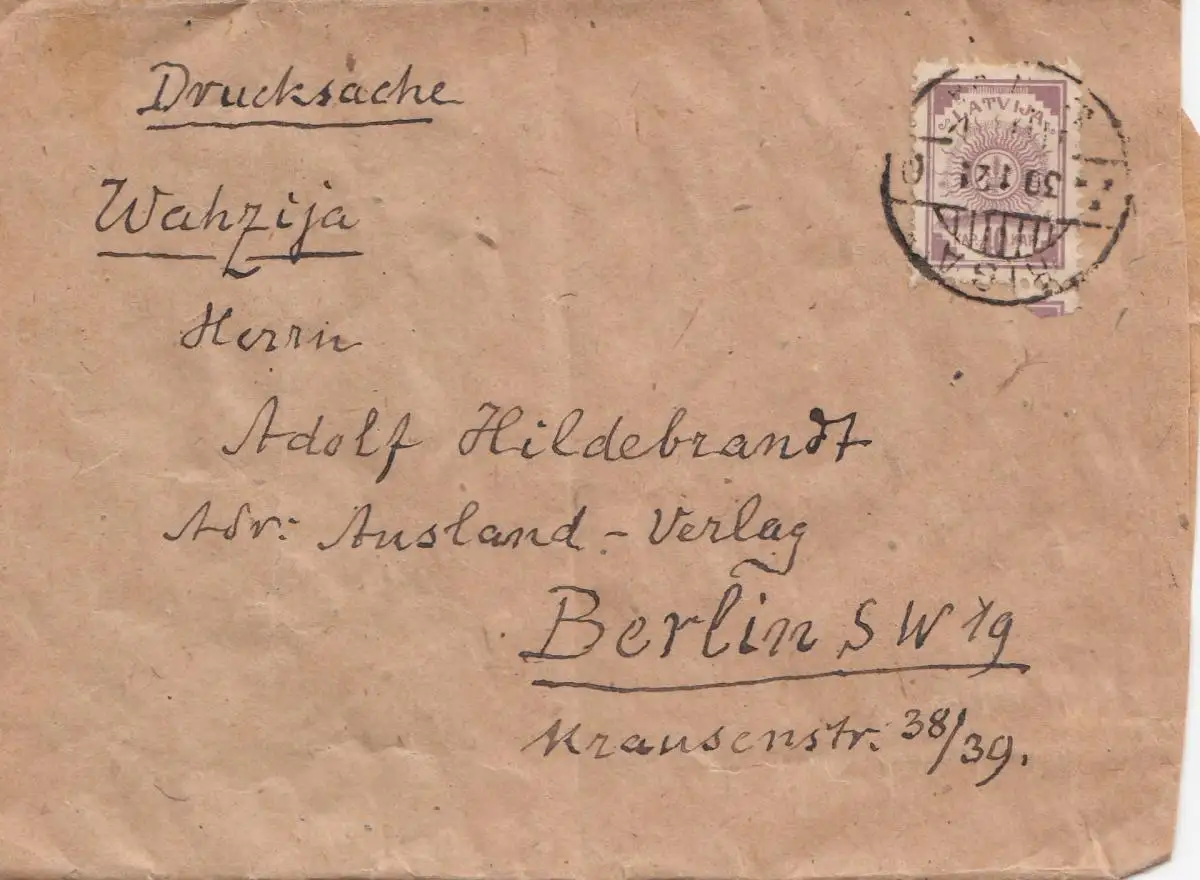 Drucksache
Wahzija
Herrn
Adolf Hildebrandt
Adr: Ausland-Verlag
Berlin SW 19
Krausenstr. 38/39.
LATVIJA
30 1 21
RIGA